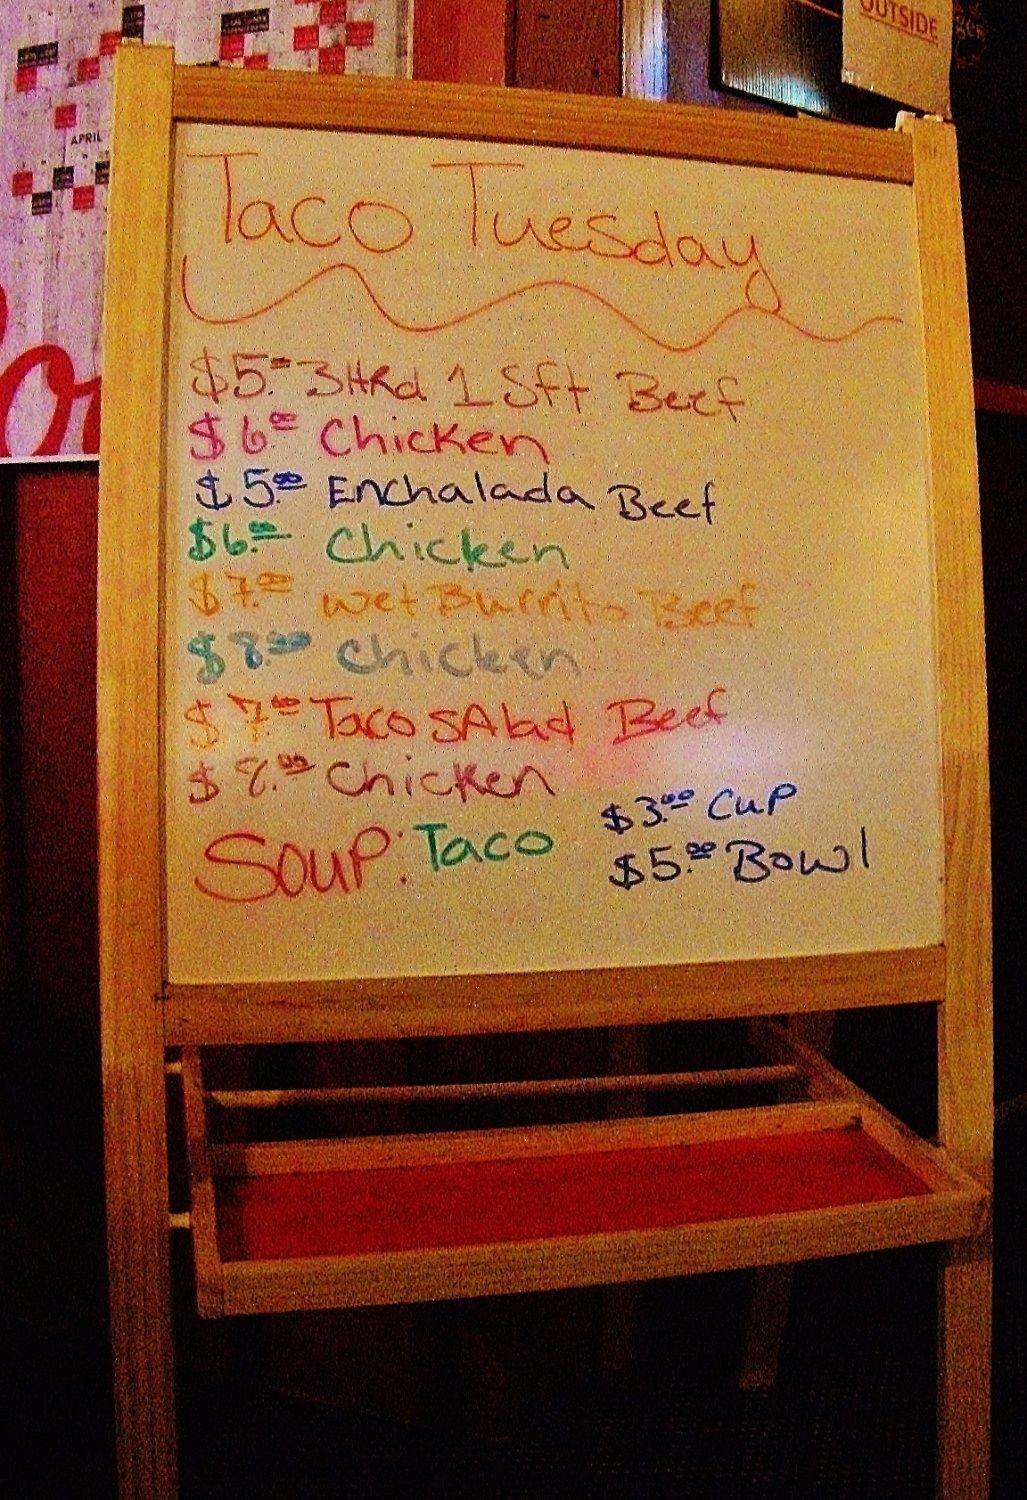 APRIL
OUTSIDE
Taco Tuesday
$5.00 3HRd 1 Sft Beef
$6.00 Chicken
$5.00 Enchalada Beef
$6.00 Chicken
$7.00 Wet Burrito Beef
$8.00 Chicken
$7.00 Taco SAlad Beef
$8.00 Chicken
Soup: Taco
$3.00 Cup
$5.00 Bowl